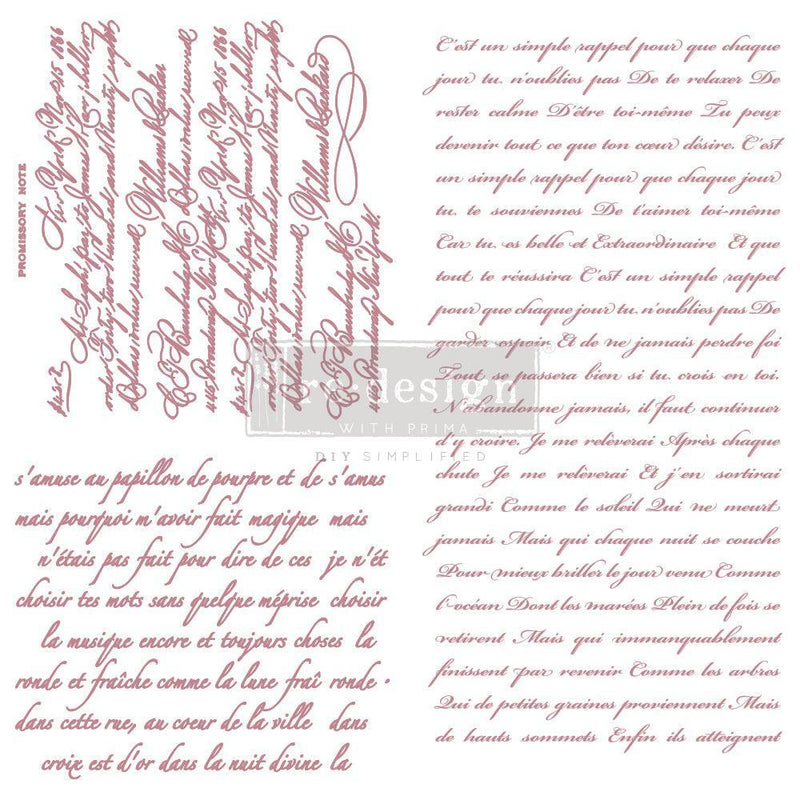 PROMISSORY NOTE
New York Nov 15 1866
At Sight pay to James
order Fifty two
Dollars value received
Williams & Parker
445 Broadway New York.
New York Nov 15 1866
At Sight pay to James
order Fifty two
Dollars value received
Williams & Parker
445 Broadway New York.
C'est un simple rappel pour que chaque
jour tu. n'oublies pas De te relaxer De
rester calme D'être toi-même Tu peux
devenir tout ce que ton cœur désire. C'est
un simple rappel pour que chaque jour
tu. te souviennes De t'aimer toi-même
Car tu. es belle et Extraordinaire Et que
tout te réussira C'est un simple rappel
pour que chaque jour tu. n'oublies pas De
garder espoir Et de ne jamais perdre foi
Tout se passera bien si tu. crois en toi.
N'abandonne jamais, il faut continuer
d'y croire. Je me relèverai Après chaque
chute Je me relèverai Et j'en sortirai
grandi Comme le soleil Qui ne meurt
jamais Mais qui chaque nuit se couche
Pour mieux briller le jour venu Comme
l'océan Dont les marées Plein de fois se
retirent Mais qui immanquablement
finissent par revenir Comme les arbres
Qui de petites graines proviennent Mais
de hauts sommets Enfin ils atteignent
re·design
WITH PRIMA
DIY SIMPLIFIED
s'amuse au papillon de pourpre et de s'amus
mais pourquoi m'avoir fait magique mais
n'étais pas fait pour dire de ces je n'ét
choisir tes mots sans quelque méprise choisir
la musique encore et toujours choses la
ronde et fraîche comme la lune fraî ronde ·
dans cette rue, au coeur de la ville dans
croix est d'or dans la nuit divine la